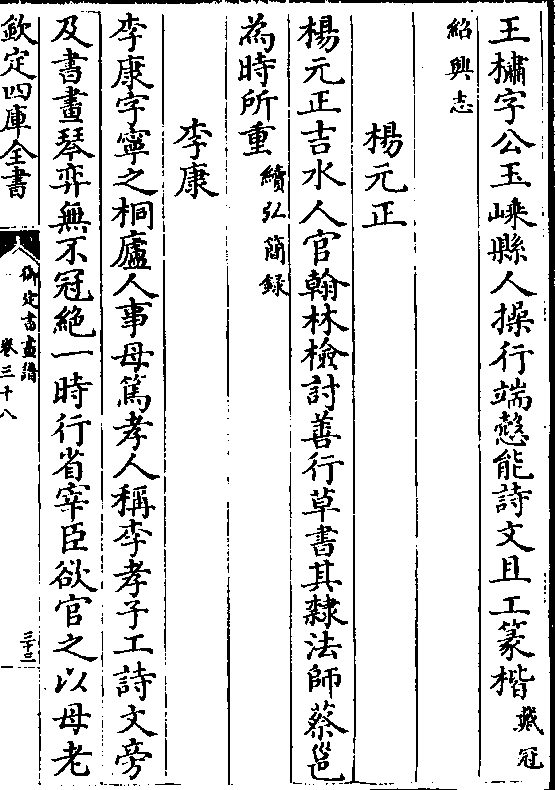 王橚字公玉嵊縣人操行端慤能詩文且工篆楷戴冠
紹興志
楊元正
楊元正吉水人官翰林檢討善行草書其隸法師蔡邕
為時所重續弘簡録
李康
李康字寧之桐廬人事母篤孝人稱李孝子工詩文旁
及書畫琴弈無不冠絶一時行省宰臣欲官之以母老
欽定四庫全書
御定書畫譜
卷三十八
三十三